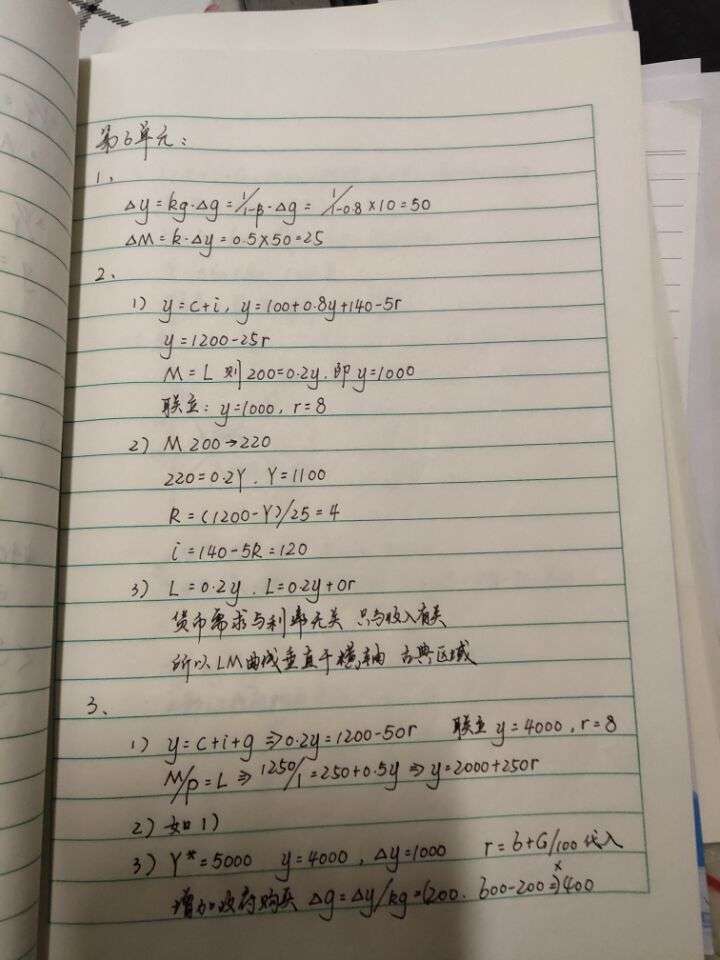 第6单元：
1、
Δy=kg·Δg=1/1-β·Δg=1/1-0.8×10=50
ΔM=k·Δy=0.5×50=25
2、
1) y=c+i, y=100+0.8y+140-5r
y=1200-25r
M=L 则200=0.2y.即y=1000
联立：y=1000, r=8
2) M 200→220
220=0.2Y. Y=1100
R=(1200-Y)/25=4
i=140-5R=120
3) L=0.2y. L=0.2y+0r
货币需求与利率无关 只与收入有关
所以LM曲线垂直于横轴 古典区域
3、
1) y=c+i+g⇒0.2y=1200-50r 联立 y=4000, r=8
M/P=L⇒1250/1=250+0.5y⇒y=2000+250r
2) 如1)
3) Y*=5000 y=4000, Δy=1000 r=6+G/100代入
增加政府购买 Δg=Δy/kg=(200. 600-200=)400